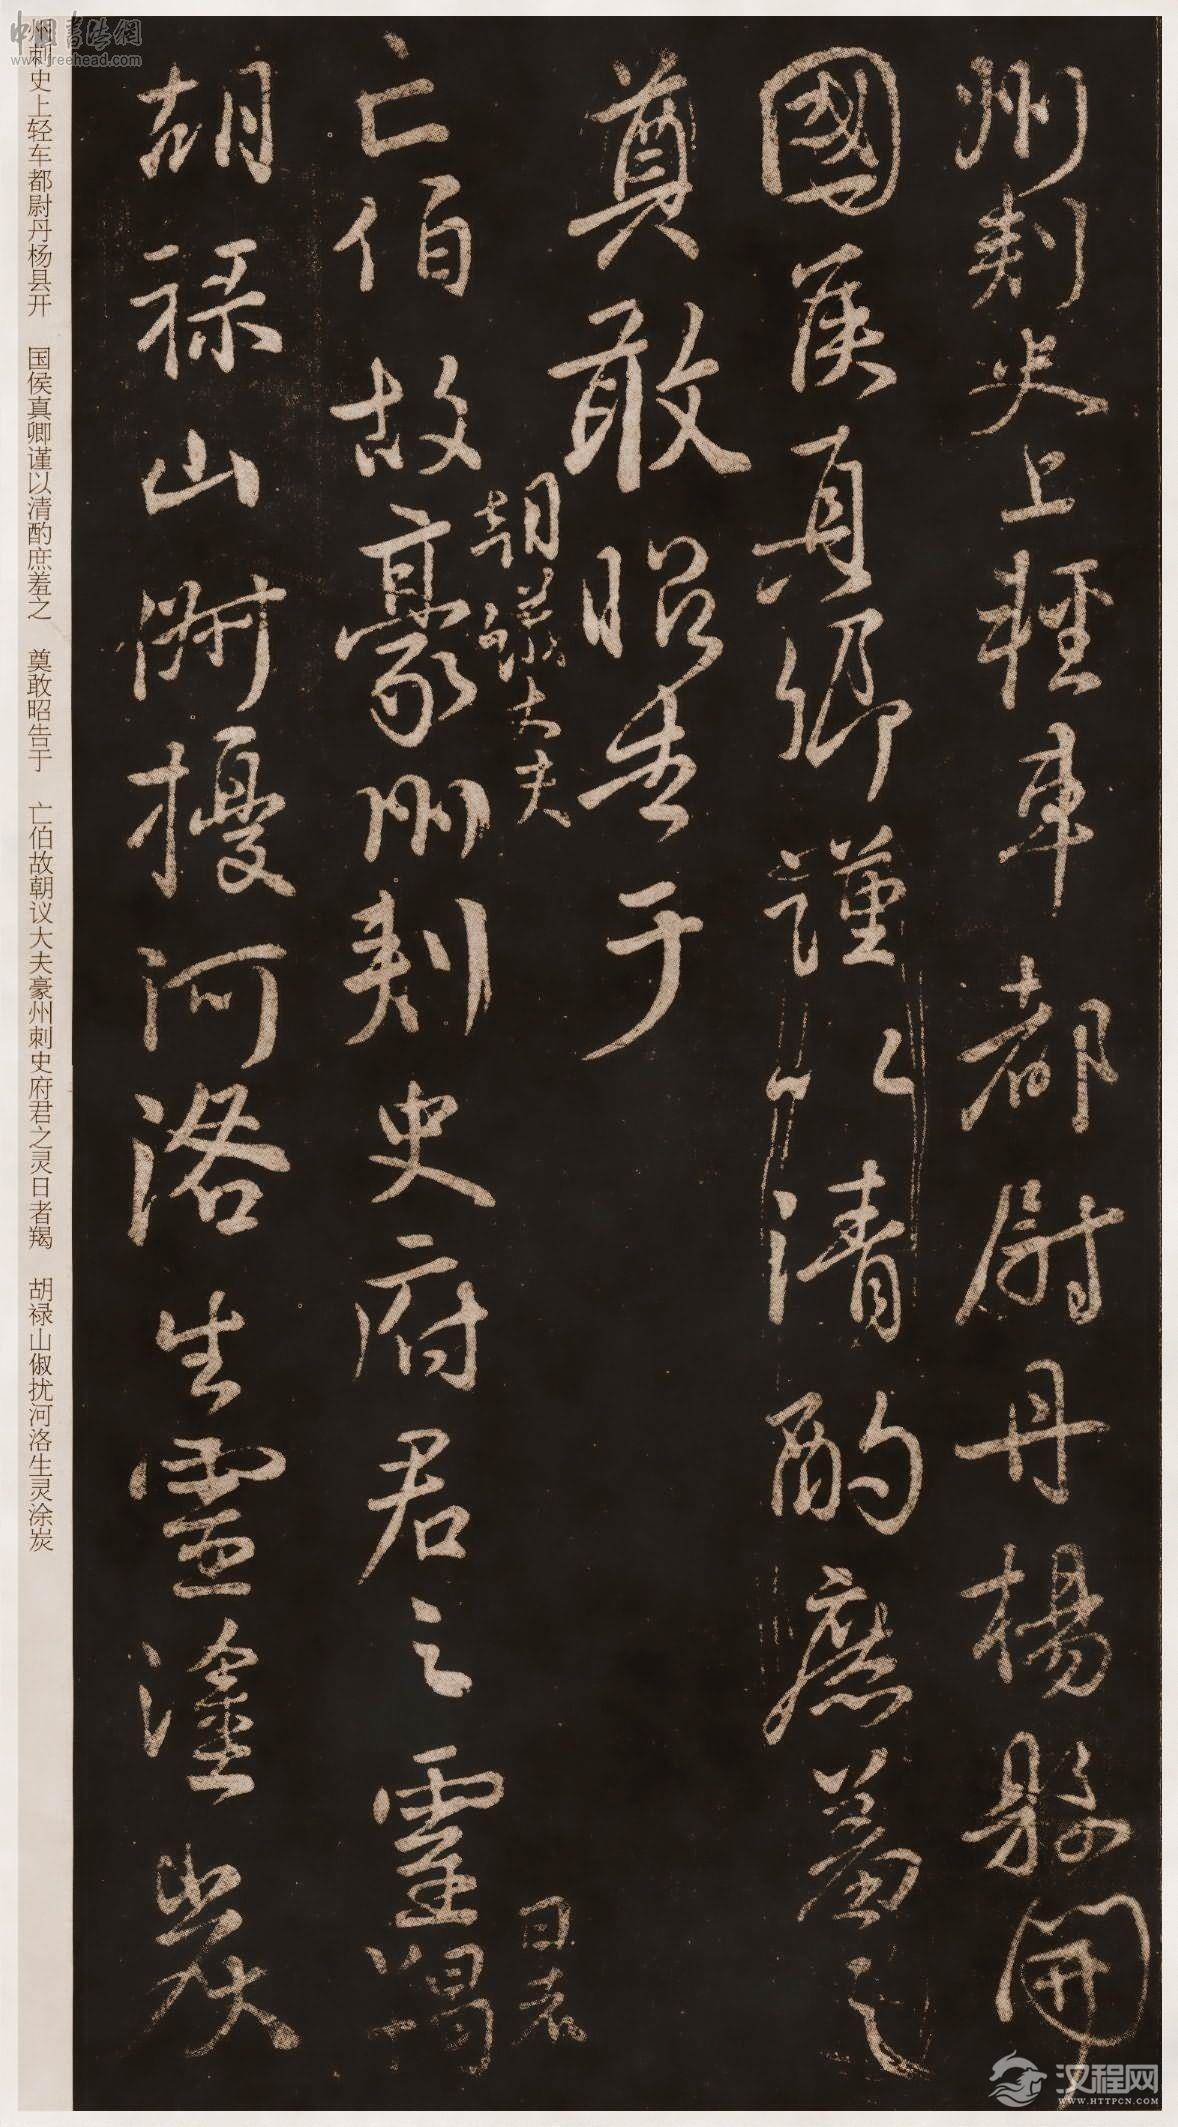 州刺史上輕車都尉丹楊縣開
國侯真卿謹以清酌庶羞之
奠敢昭告于
朝議大夫
亡伯故豪州刺史府君之靈羯
日者
胡祿山俶擾河洛生靈塗炭
州刺史上轻车都尉丹杨县开 国侯真卿谨以清酌庶羞之 奠敢昭告于 亡伯故朝议大夫豪州刺史府君之灵日者羯 胡禄山俶扰河洛生灵涂炭
中国书法網
www.freehead.com
汉程网
WWW.HTTPCN.COM